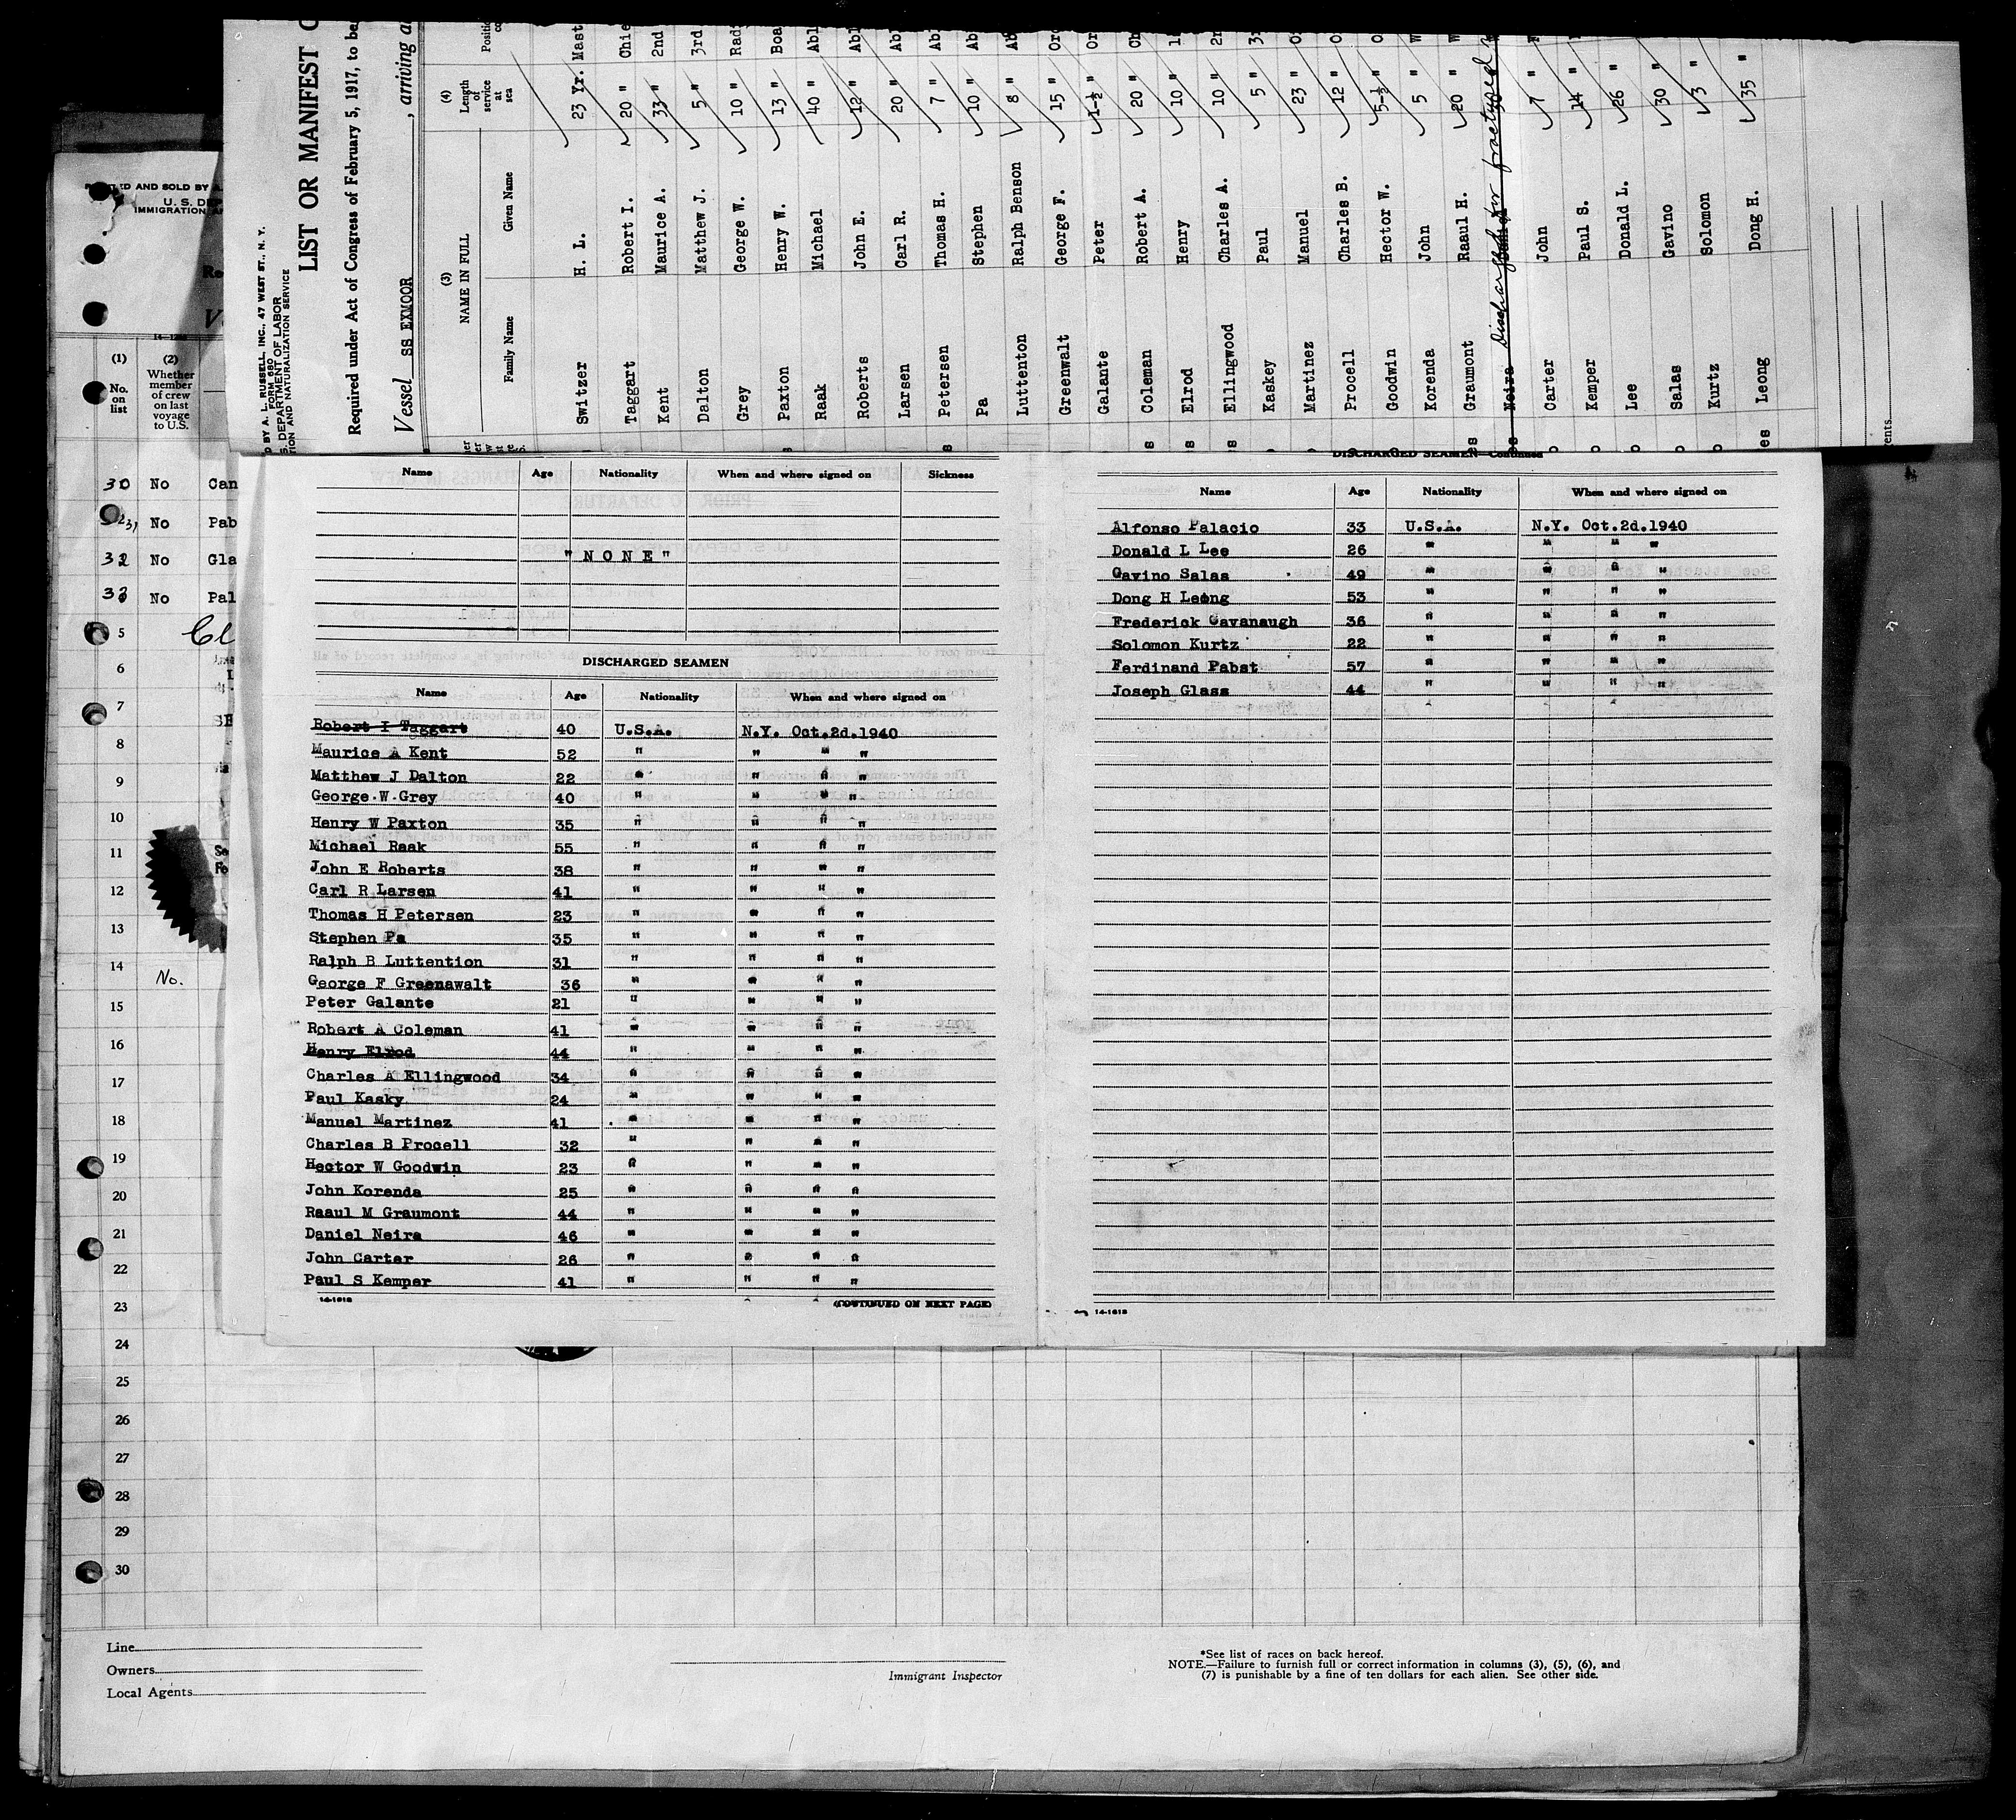 LIST OR MANIFEST
Required under Act of Congress of February 5, 1917, to be
Vessel SS EXMOOR , arriving at
BY A. L. RUSSELL, INC., 47 WEST ST., N. Y.
FORM 680
DEPARTMENT OF LABOR
AND NATURALIZATION SERVICE
(3) NAME IN FULL
(4) Length of service at sea
Family Name Given Name
Switzer H. L. 23 Yr. Mast
Taggart Robert I. 20 " Chie
Kent Maurice A. 33 " 2nd
Dalton Matthew J. 5 " 3rd
Grey George W. 10 " Rad
Paxton Henry W. 13 " Boa
Raak Michael 40 " Abl
Roberts John E. 12 " Abl
Larsen Carl R. 20 " Ab
Petersen Thomas H. 7 " Ab
Pa Stephen 10 " Ab
Luttenton Ralph Benson 8 " Ab
Greenwalt George F. 15 " Or
Galante Peter 1-½ " Or
Coleman Robert A. 20 " Ch
Elrod Henry 10 "
Ellingwood Charles A. 10 " 2n
Kaskey Paul 5 "
Martinez Manuel 23 " O
Procell Charles B. 12 " O
Goodwin Hector W. 5-½ " O
Korenda John 5 " W
Graumont Raaul H. 20 " W
Neira Discharged for fractured
Carter John 7 "
Kemper Paul S. 14 "
Lee Donald L. 26 "
Salas Gavino 30 "
Kurtz Solomon 3 "
Leong Dong H. 35 "
AND SOLD BY A.
U. S. DEP
IMMIGRATION A
(1) No. on list
(2) Whether member of crew on last voyage to U.S.
30 No Can
31 No Pab
32 No Gla
33 No Pal
5
6
7
8
9
10
11
12
13
14 No.
15
16
17
18
19
20
21
22
23
24
25
26
27
28
29
30
Name Age Nationality When and where signed on Sickness
"NONE"
DISCHARGED SEAMEN
Name Age Nationality When and where signed on
Robert I Taggart 40 U.S.A. N.Y. Oct.2d.1940
Maurice A Kent 52 " " " "
Matthew J Dalton 22 " " " "
George W Grey 40 " " " "
Henry W Paxton 35 " " " "
Michael Raak 55 " " " "
John E Roberts 38 " " " "
Carl R Larsen 41 " " " "
Thomas H Petersen 23 " " " "
Stephen Pa 35 " " " "
Ralph B Luttention 31 " " " "
George F Greenawalt 36 " " " "
Peter Galante 21 " " " "
Robert A Coleman 41 " " " "
Henry Elrod 44 " " " "
Charles A Ellingwood 34 " " " "
Paul Kasky 24 " " " "
Manuel Martinez 41 " " " "
Charles B Procell 32 " " " "
Hector W Goodwin 23 " " " "
John Korenda 25 " " " "
Raaul M Graumont 44 " " " "
Daniel Neira 46 " " " "
John Carter 26 " " " "
Paul S Kemper 41 " " " "
14-1618 (CONTINUED ON NEXT PAGE)
DISCHARGED SEAMEN—Continued
Name Age Nationality When and where signed on
Alfonso Palacio 33 U.S.A. N.Y. Oct.2d.1940
Donald L Lee 26 " " " "
Gavino Salas 49 " " " "
Dong H Leong 53 " " " "
Frederick Cavanaugh 36 " " " "
Solomon Kurtz 22 " " " "
Ferdinand Pabst 57 " " " "
Joseph Glass 44 " " " "
14-1618
Line
Owners
Local Agents
Immigrant Inspector
*See list of races on back hereof.
NOTE.—Failure to furnish full or correct information in columns (3), (5), (6), and
(7) is punishable by a fine of ten dollars for each alien. See other side.